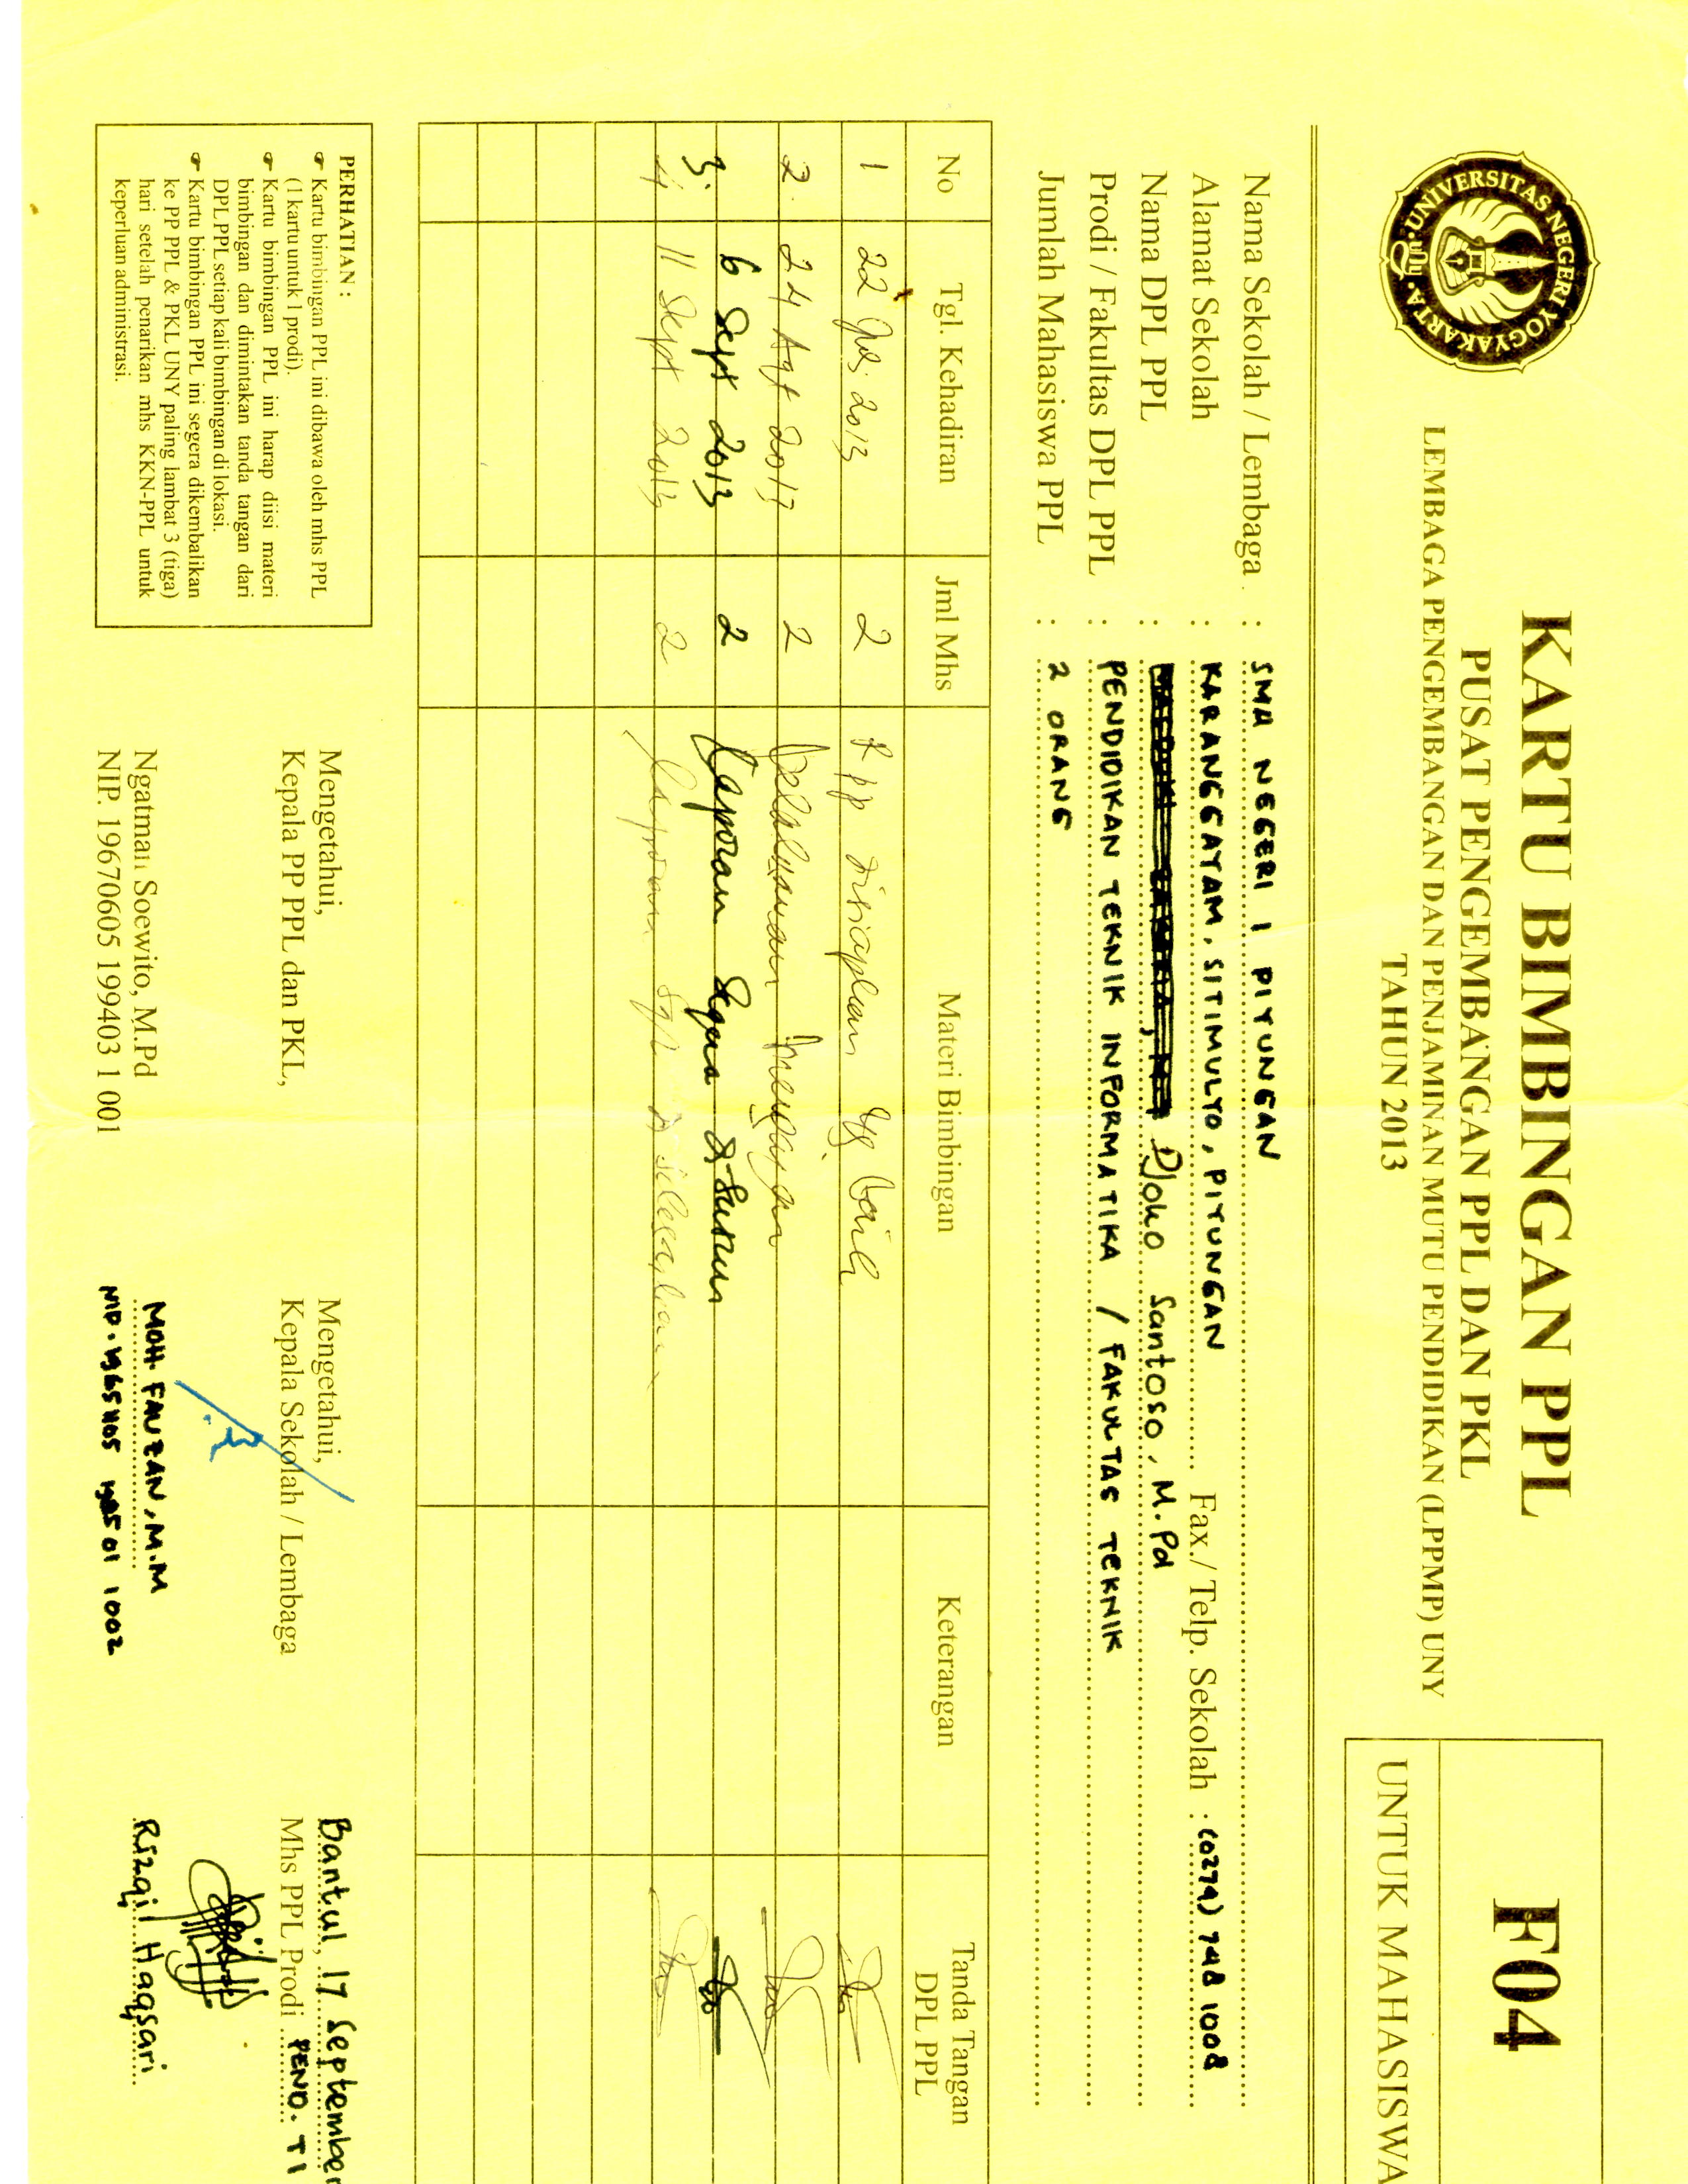 UNIVERSITAS NEGERI YOGYAKARTA
KARTU BIMBINGAN PPL
PUSAT PENGEMBANGAN PPL DAN PKL
LEMBAGA PENGEMBANGAN DAN PENJAMINAN MUTU PENDIDIKAN (LPPMP) UNY
TAHUN 2013
F04
UNTUK MAHASISWA
Nama Sekolah / Lembaga : SMA NEGERI 1 PIYUNGAN
Alamat Sekolah : KARANGGAYAM, SITIMULYO, PIYUNGAN Fax./ Telp. Sekolah : (0274) 748 1008
Nama DPL PPL : Djoko Santoso, M.Pd
Prodi / Fakultas DPL PPL : PENDIDIKAN TEKNIK INFORMATIKA / FAKULTAS TEKNIK
Jumlah Mahasiswa PPL : 2 ORANG
No Tgl. Kehadiran Jml Mhs Materi Bimbingan Keterangan Tanda Tangan DPL PPL
1 22 2013 2 Rpp disiapkan yg baik
2. 24 Agt 2013 2 Pelaksanaan
3. 6 Sept 2013 2 Laporan segera disusun
4 11 Sept 2013 2 Laporan
PERHATIAN :
☞ Kartu bimbingan PPL ini dibawa oleh mhs PPL
(1 kartu untuk 1 prodi).
☞ Kartu bimbingan PPL ini harap diisi materi
bimbingan dan dimintakan tanda tangan dari
DPL PPL setiap kali bimbingan di lokasi.
☞ Kartu bimbingan PPL ini segera dikembalikan
ke PP PPL & PKL UNY paling lambat 3 (tiga)
hari setelah penarikan mhs KKN-PPL untuk
keperluan administrasi.
Mengetahui,
Kepala PP PPL dan PKL,
Ngatman Soewito, M.Pd
NIP. 19670605 199403 1 001
Mengetahui,
Kepala Sekolah / Lembaga
MOH. FAUZAN, M.M
NIP. 19651105 198501 1002
Bantul, 17 September
Mhs PPL Prodi PEND. TI
Rizqi Haqsari